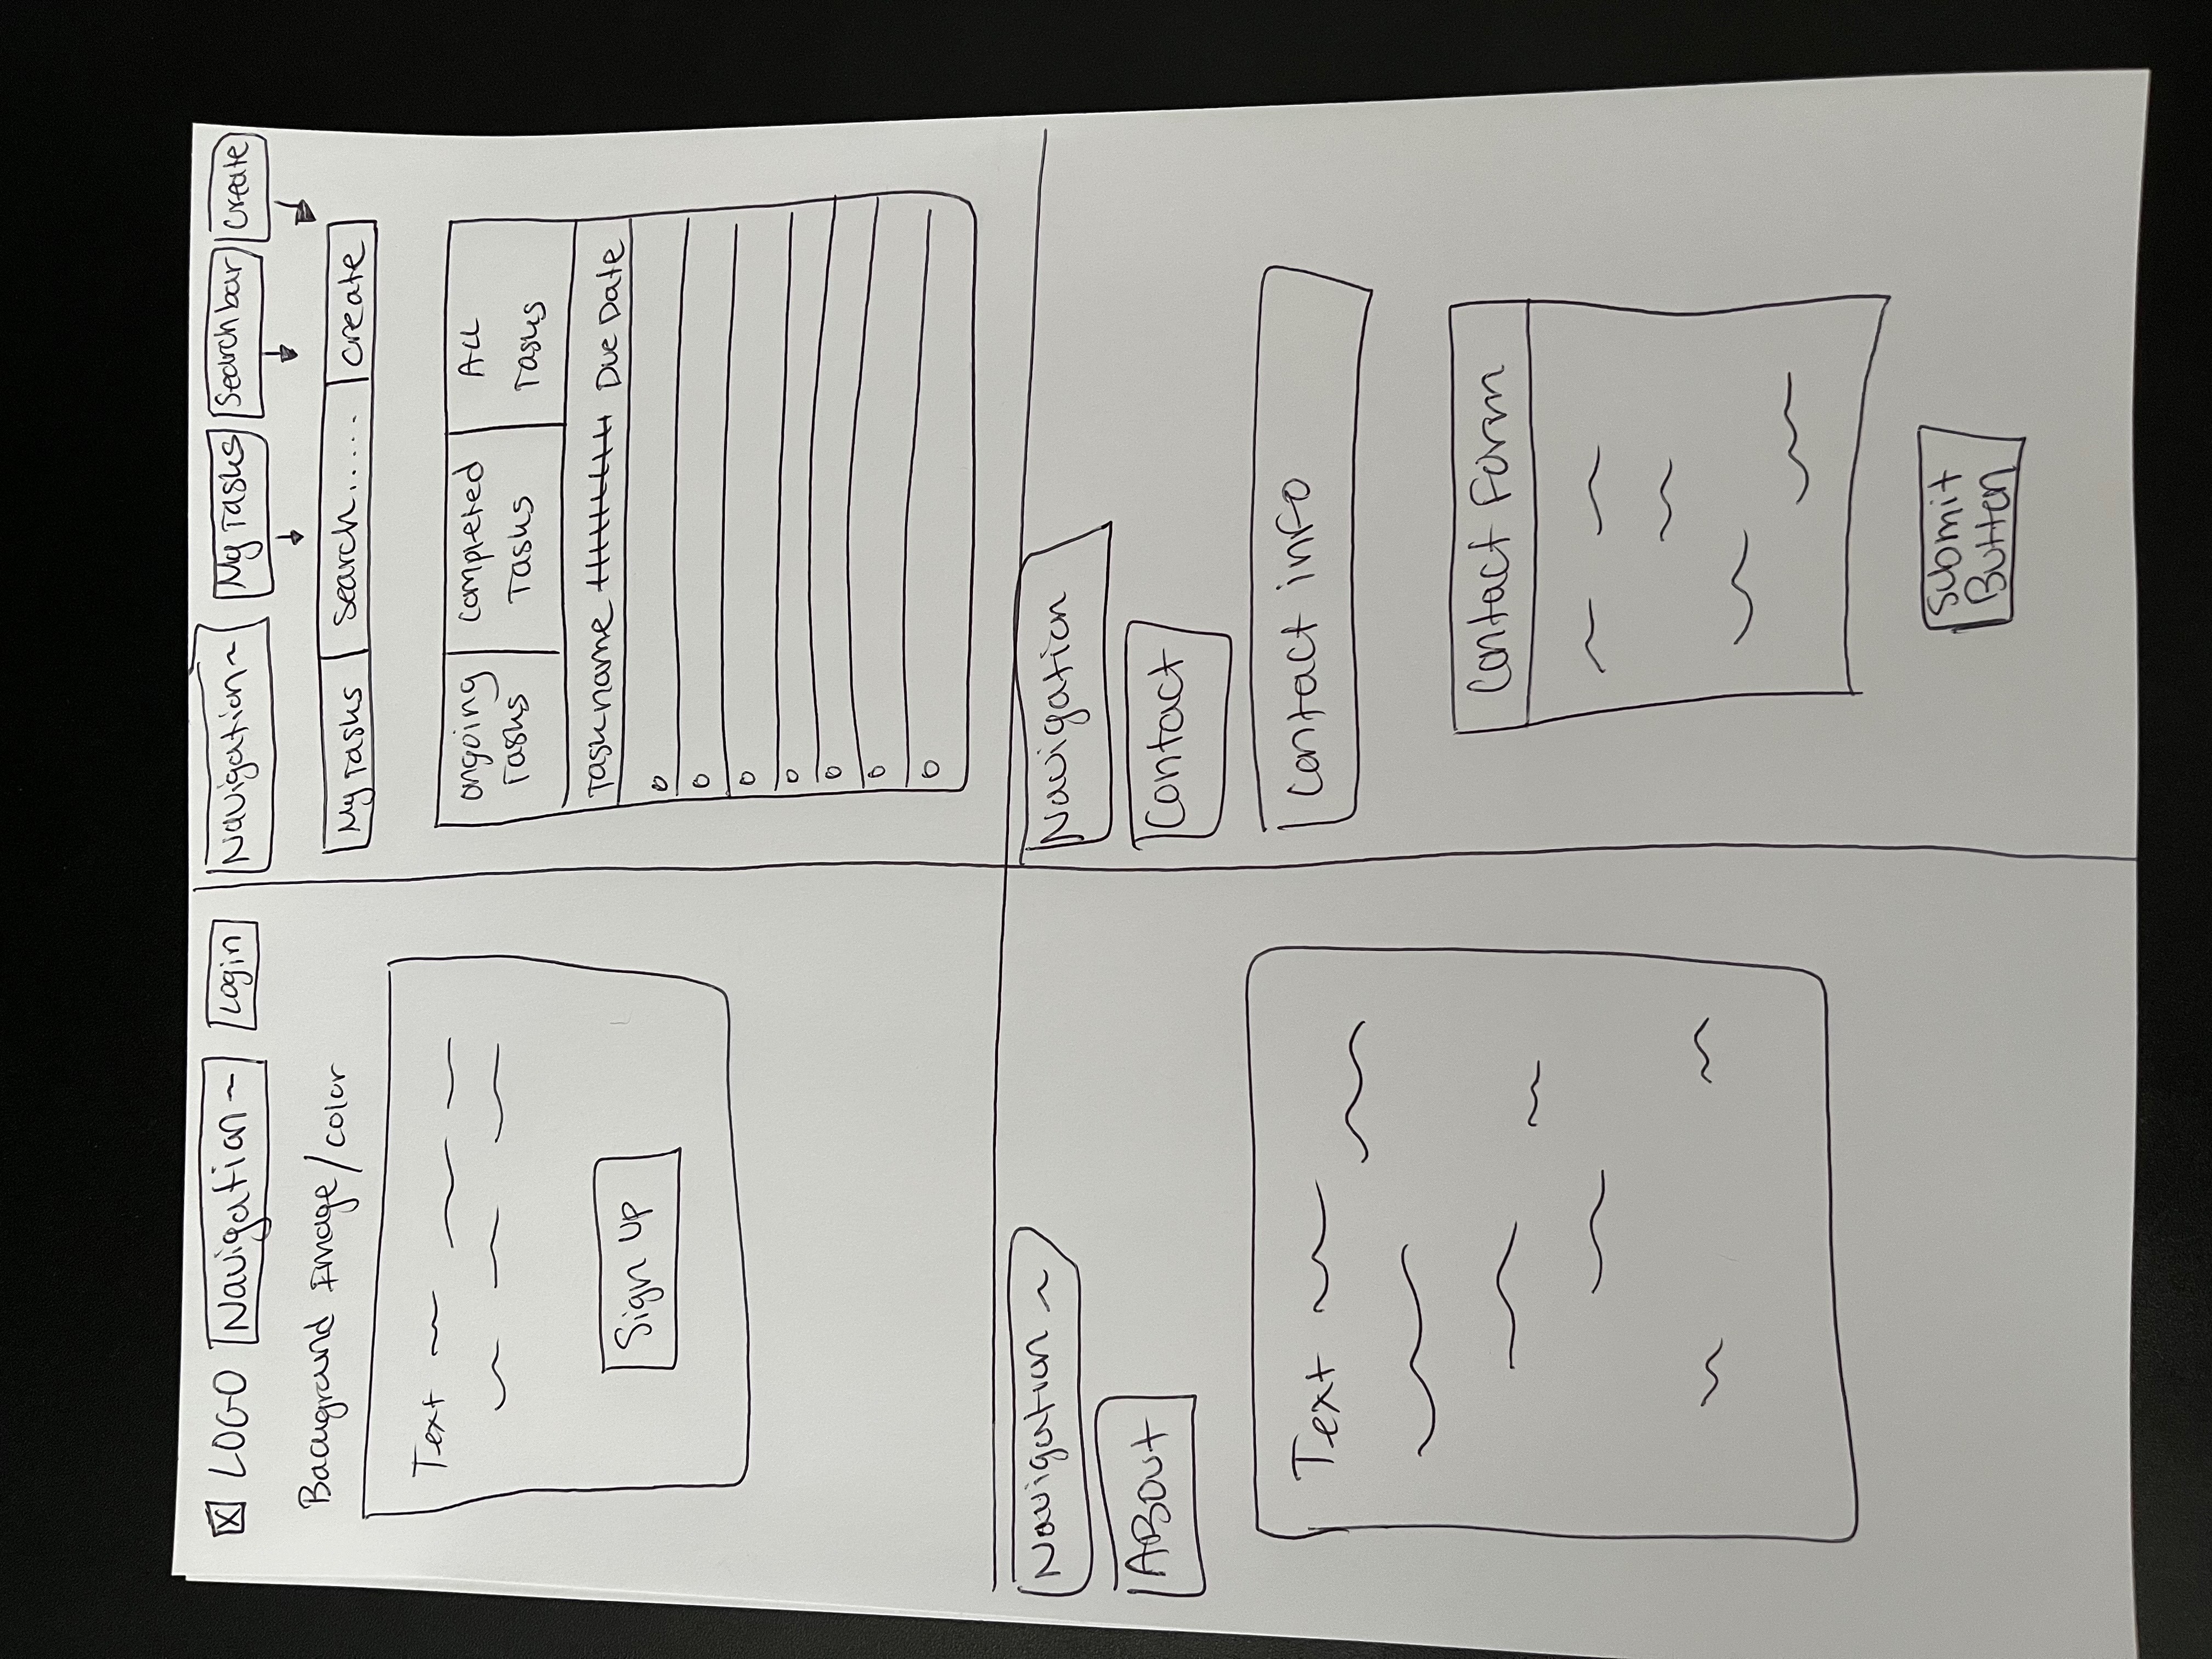 LOGO Navigation Login
Background Image/color
Text
Sign up
Navigation My Tasks Search bar Create
My Tasks Search..... Create
ongoing Tasks completed Tasks All Tasks
Taskname Due Date
Navigation
ABout
Text
Navigation
Contact
Contact info
Contact Form
Submit
Button